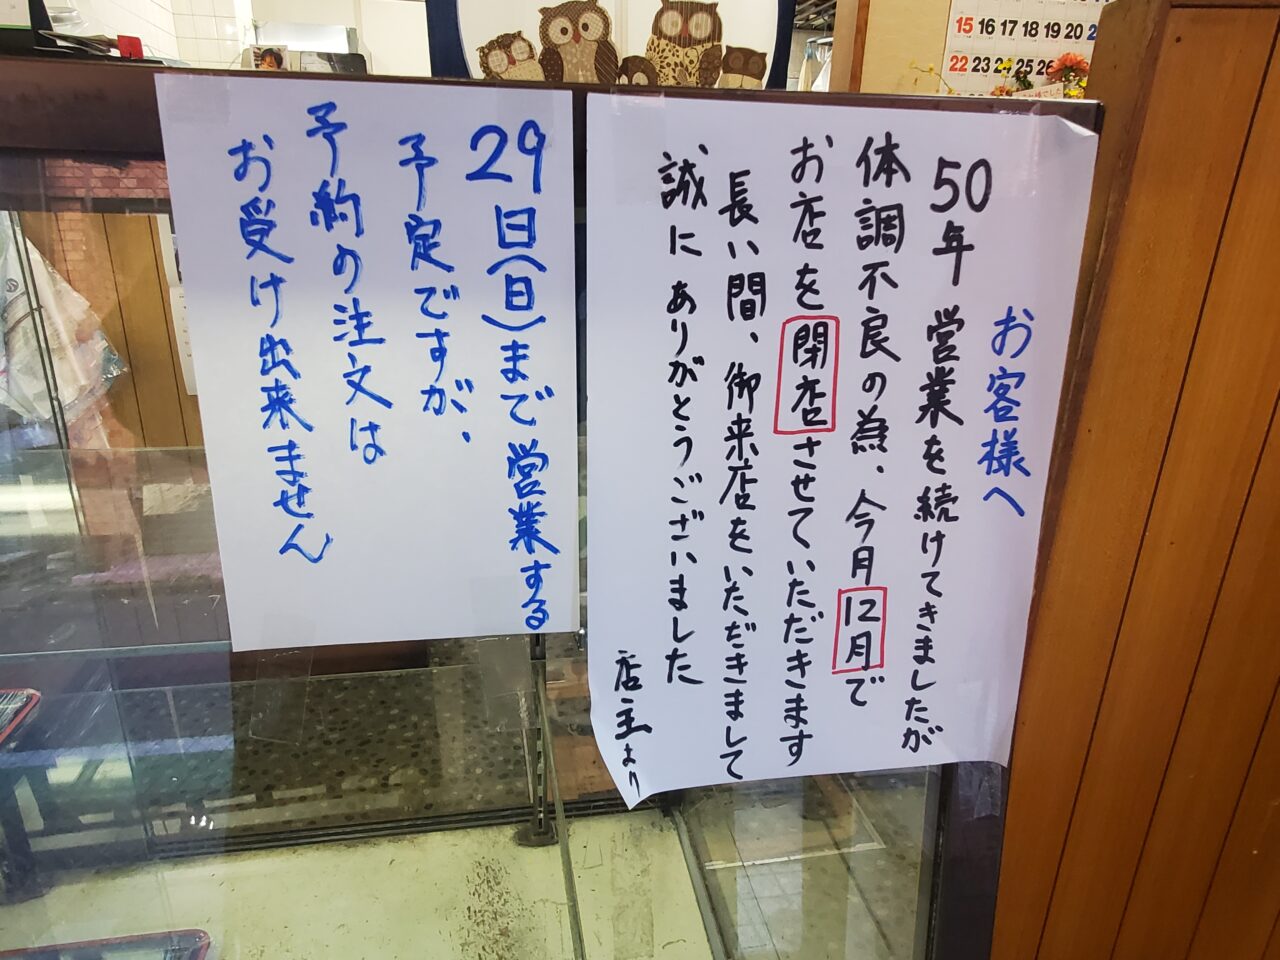 お客様へ
50年 営業を続けてきましたが
体調不良の為、今月12月で
お店を閉店させていただきます
長い間、御来店をいただきまして
誠に ありがとうございました
店主より
29日(日)まで営業する
予定ですが、
予約の注文は
お受け出来ません
15 16 17 18 19 20
22 23 24 25 26